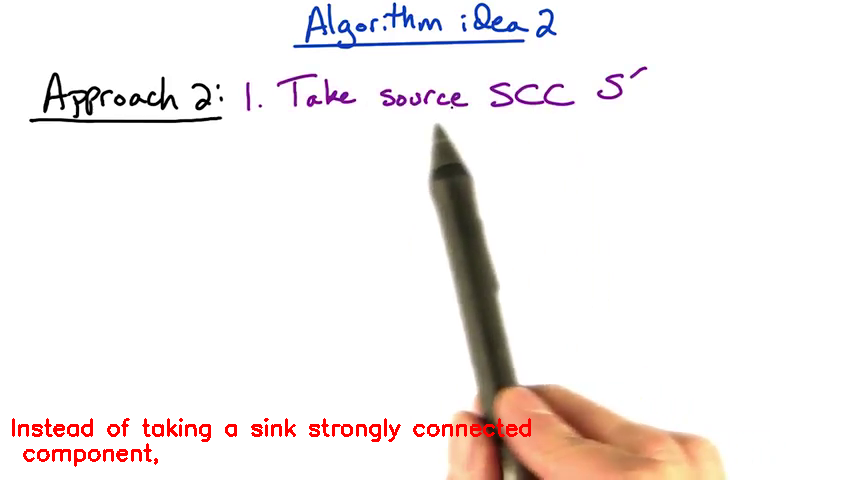 Algorithm idea 2
Approach 2: 1. Take source SCC S'
Instead of taking a sink strongly connected
component,